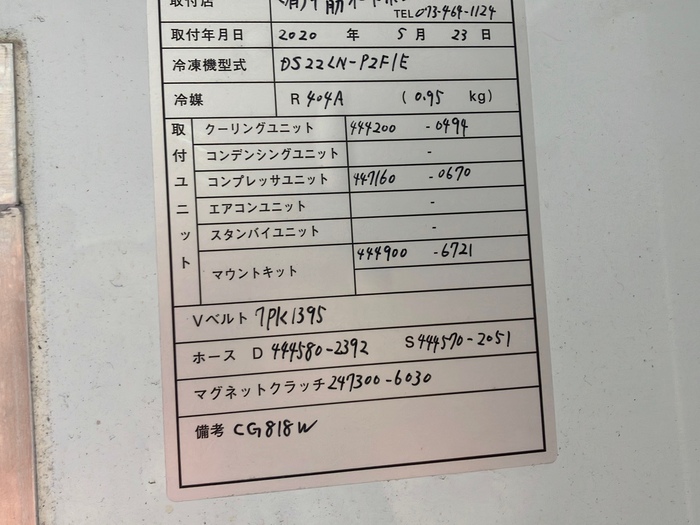 取付店
TEL 073-464-1124
取付年月日 2020 年 5 月 23 日
冷凍機型式 DS22LN-P2F1E
冷媒 R 404A (0.95 kg)
取付ユニット
クーリングユニット 444200 -0494
コンデンシングユニット -
コンプレッサユニット 447160 -0670
エアコンユニット -
スタンバイユニット -
マウントキット 444900 -6721
Vベルト 7PK1395
ホース D 444580-2392 S 444570-2051
マグネットクラッチ 247300-6030
備考 CG818W